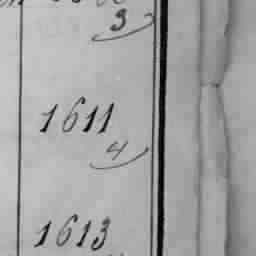 3
1611
4
1613